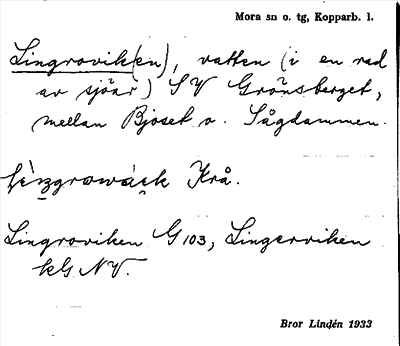 Mora sn o. tg, Kopparb. l.
Lingroviken), vatten (i en rad
av sjöar) SV Grönsberget,
mellan Bjöset o. Sågdammen.
Krå.
Lingroviken G 103, Lingerviken
kG NV.
Bror Lindén 1933